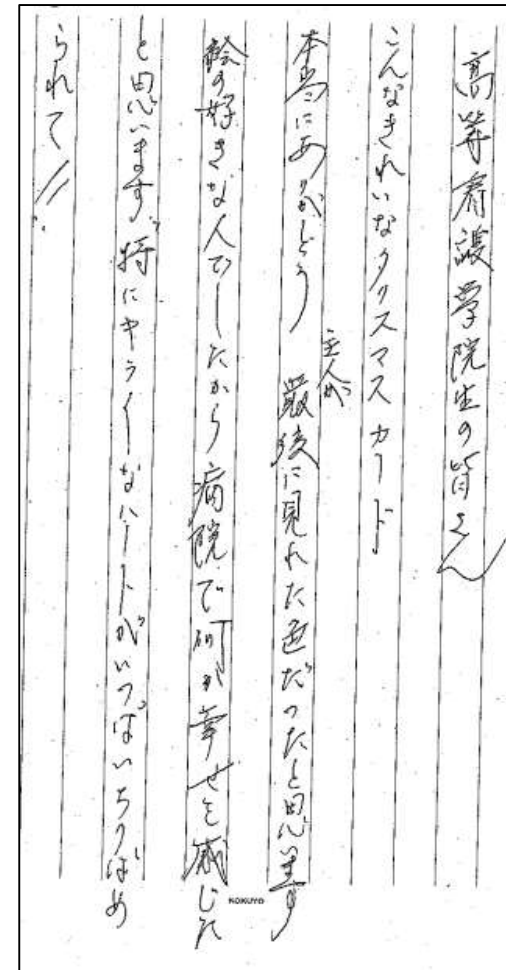 高等看護学院生の皆さん
こんなきれいなクリスマスカード
本当にありがとう 主人が最後に見れた色だったと思います
絵の好きな人でしたから病院で何か幸せを感じた
と思います。特にキライなハートがいっぱいちりばめ
られて!!
KOKUYO